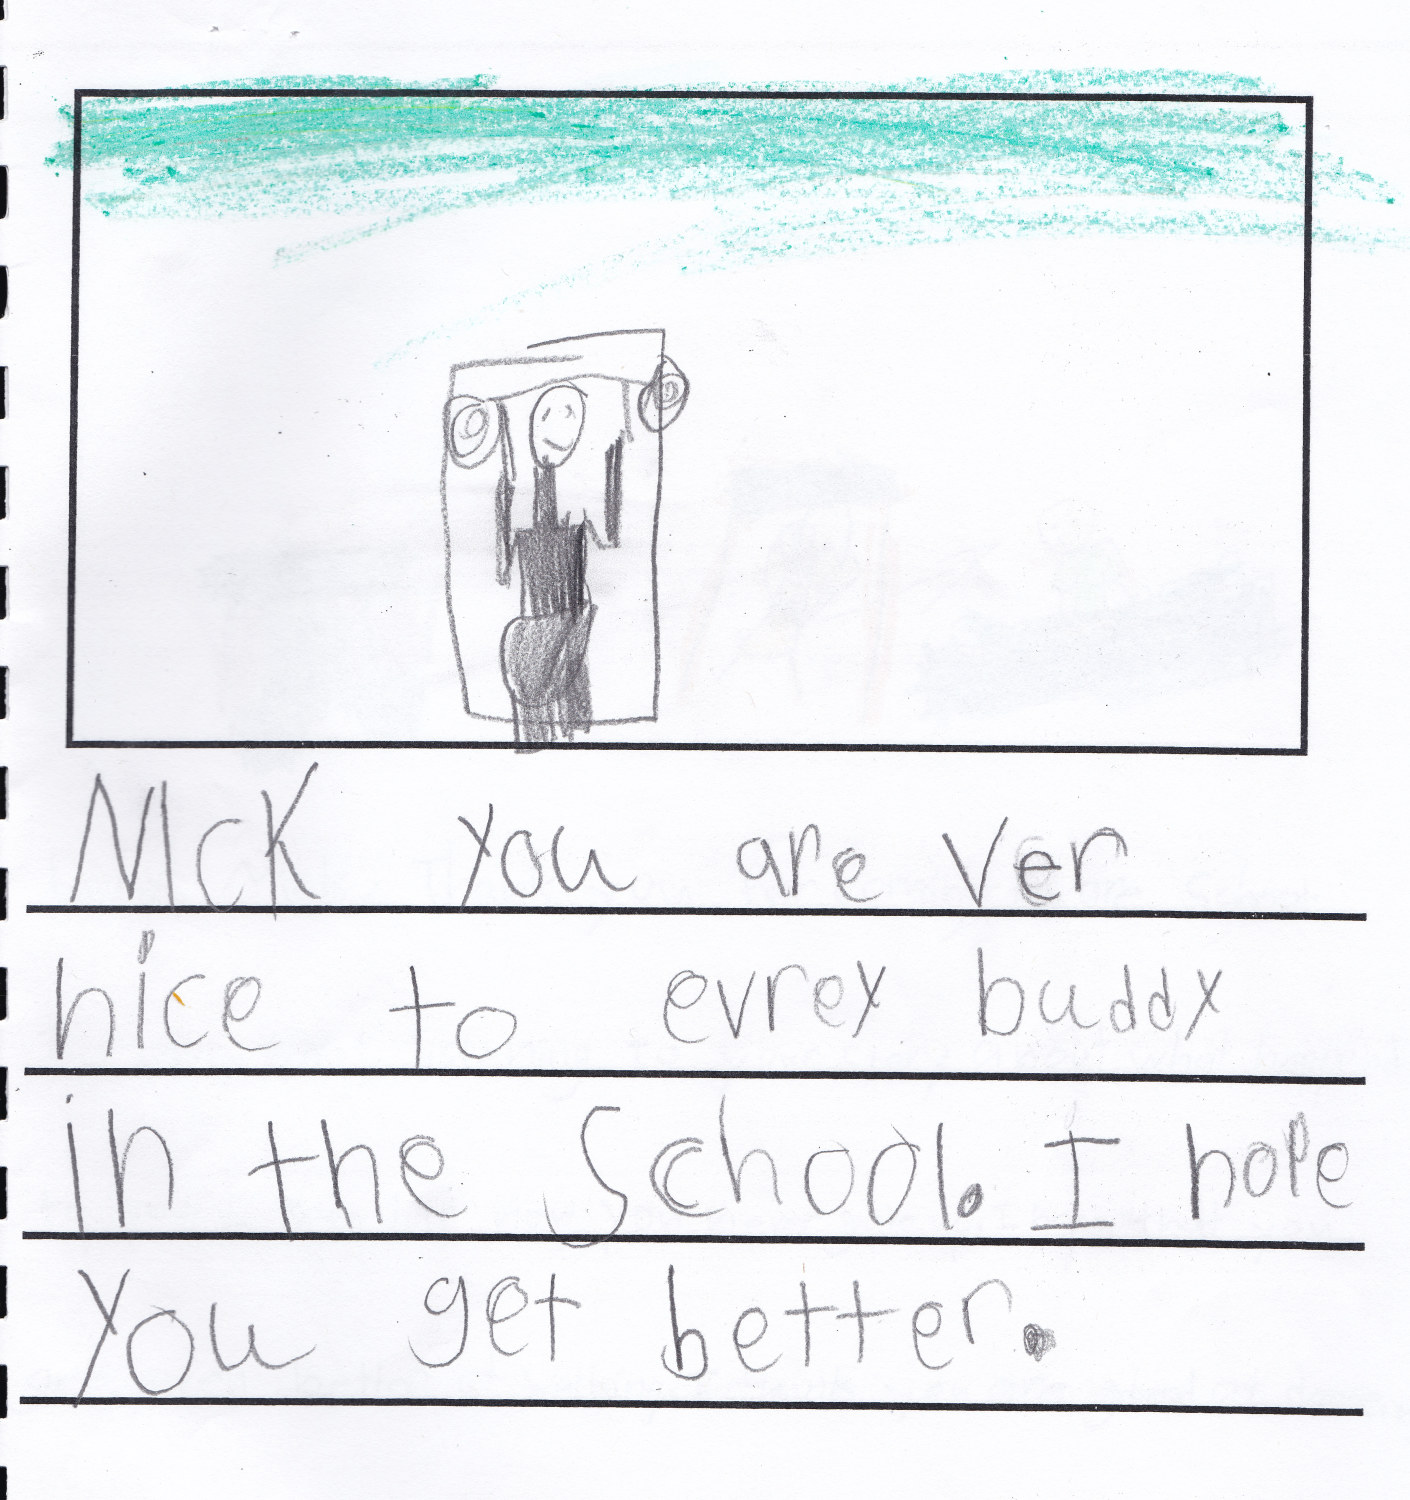 NIcK you are ver
nice to evrey buddy
in the School. I hope
you get better.